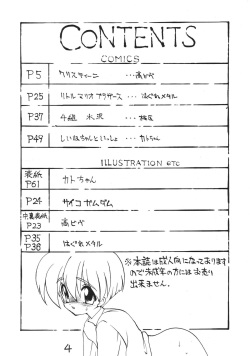 CONTENTS
COMICS
P5 クリスティーニ …高ピペ
P25 リトルマリオブラザース …はぐれメタル
P37 4組 水沢
P49 しいねちゃんといっしょ …カトちゃん
ILLUSTRATION etc
表紙 P61 カトちゃん
P24 サイコ ヤムダム
中裏表紙 P23 高ピペ
P35 P36 はぐれメタル
※本誌は成人向になっております
ので未成年の方にはお売り
出来ません.
4